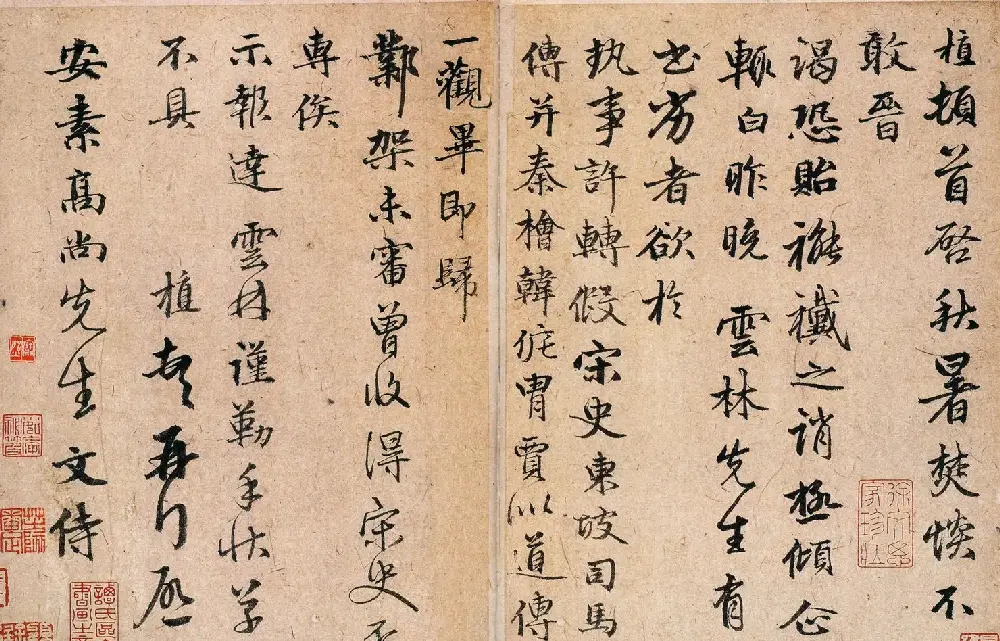 植頓首啓秋暑焚惔不
敢晉
謁恐貽褦襶之誚極傾企
輒白昨晚 雲林先生有
書劣者欲於
執事許轉假宋史東坡司馬
傳并秦檜韓侂胄賈似道傳
一觀畢即歸
鄴架未審曾收得宋史否
專俟
示報達 雲林謹勒手狀草
不具 植頓首再拜啓
安素高尚先生文侍